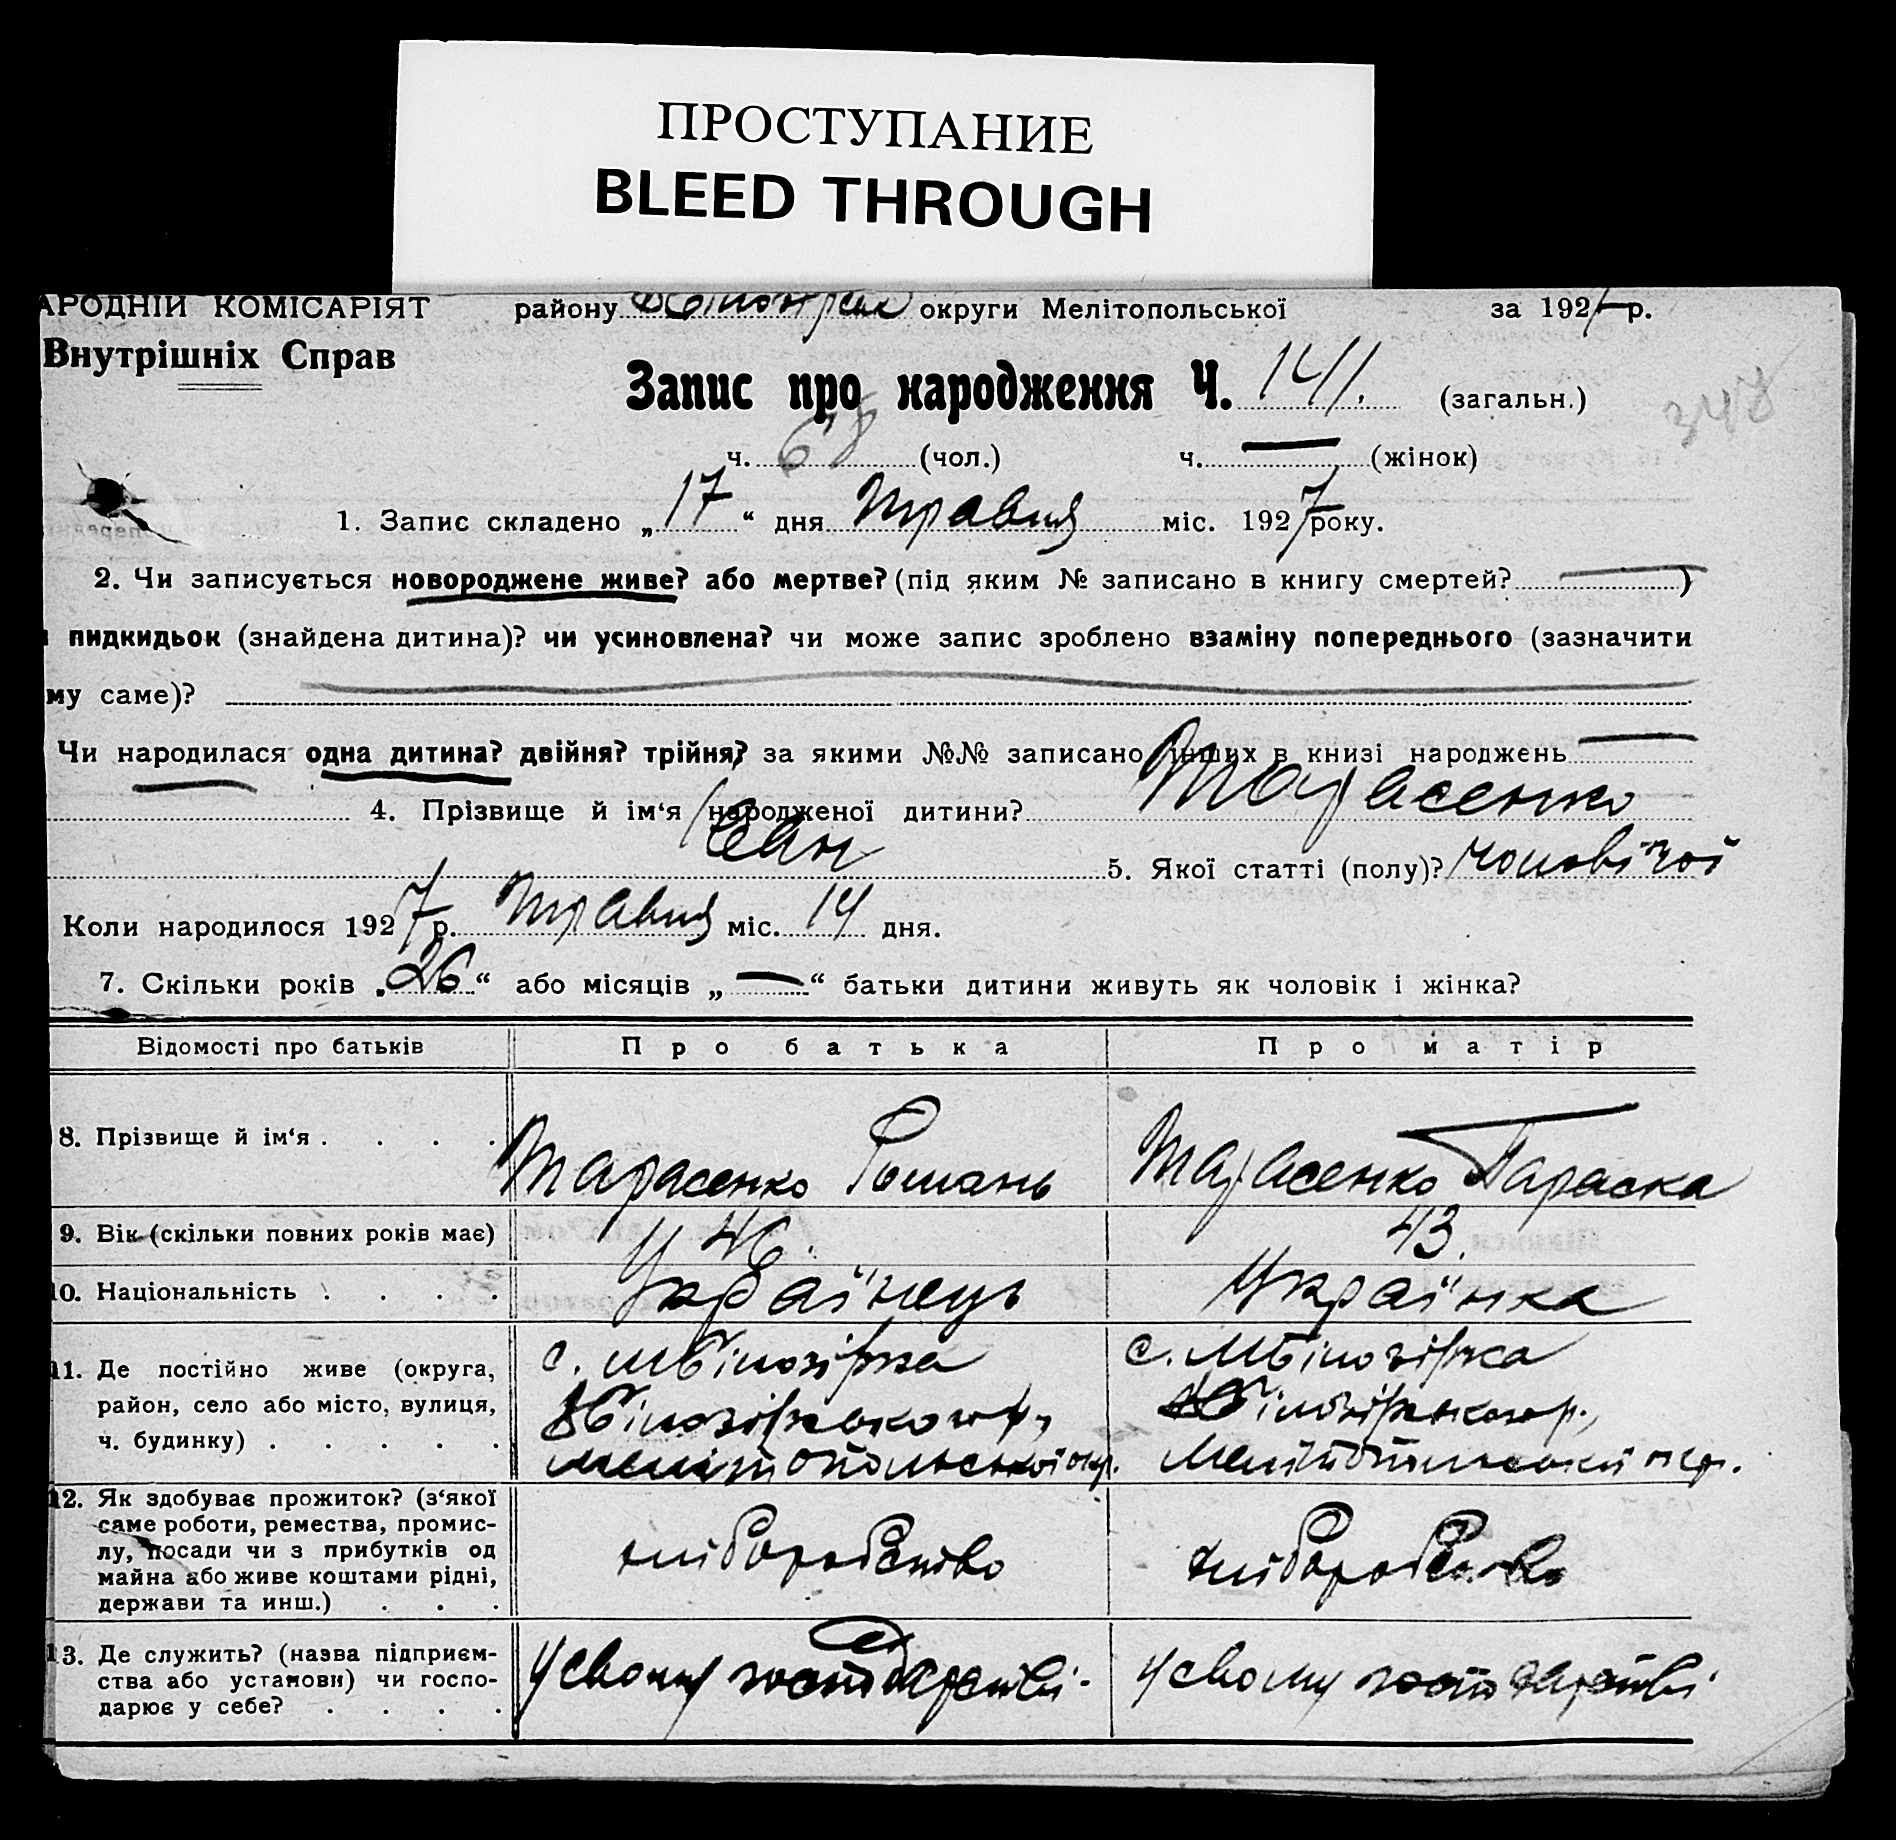 ПРОСТУПАНИЕ
BLEED THROUGH
АРОДНІЙ КОМІСАРІЯТ району округи Мелітопольської за 1927 р.
Внутрішніх Справ
Запис про народження Ч. 141. (загальн.)
348
ч. 68 (чол.) ч. — (жінок)
1. Запис складено „17“ дня Травня міс. 1927 року.
2. Чи записується новороджене живе? або мертве? (під яким № записано в книгу смертей? — )
пидкидьок (знайдена дитина)? чи усиновлена? чи може запис зроблено взаміну попереднього (зазначити
му саме)?
Чи народилася одна дитина? двійня? трійня? за якими №№ записано інших в книзі народжень —
— 4. Прізвище й ім‘я народженої дитини? Тарасенко
Іван 5. Якої статті (полу)? чоловічої
Коли народилося 1927 р. Травня міс. 14 дня.
7. Скільки років „26“ або місяців „—“ батьки дитини живуть як чоловік і жінка?
Відомості про батьків Про батька Про матір
8. Прізвище й ім‘я . . . . Тарасенко Романь Тарасенко Параска
9. Вік (скільки повних років має) 46. 43.
10. Національність . . . . Українець Українка
11. Де постійно живе (округа, с. М Білозірка с. М Білозірка
район, село або місто, вулиця, Білозірського р., Білозірського р.,
ч. будинку) . . . . . Мелітопольської окр. Мелітопольської окр.
12. Як здобуває прожиток? (з‘якої
саме роботи, ремества, промис-
лу, посади чи з прибутків од хліборобство хліборобство
майна або живе коштами рідні,
держави та инш.) . . .
13. Де служить? (назва підприєм-
ства або установи) чи госпо- У свому господарстві. У свому господарстві
дарює у себе? . . . .